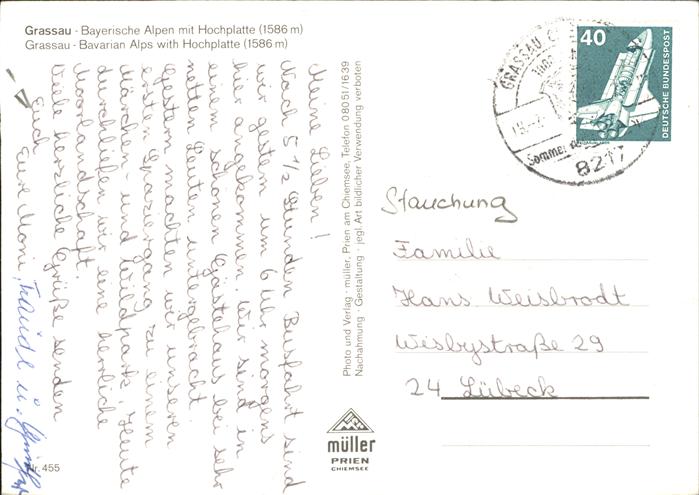 Grassau · Bayerische Alpen mit Hochplatte (1586 m)
Grassau · Bavarian Alps with Hochplatte (1586 m)
Meine Lieben!
Nach 5 1/2 Stunden Busfahrt sind
wir gestern um 6 Uhr morgens
hier angekommen. Wir sind in
einem schönen Gästehaus bei sehr
netten Leuten untergebracht.
Gestern machten wir unseren
ersten Spaziergang zu einem
Märchen- und Wildpark. Heute
durchliefen wir eine herrliche
Moorlandschaft.
Viele herzliche Grüße senden
Euch
Eure Moni,
Traudl u.
Nr. 455
Photo und Verlag · müller, Prien am Chiemsee, Telefon 08051/1639
Nachahmung · Gestaltung · jegl. Art bildlicher Verwendung verboten
müller
PRIEN
CHIEMSEE
GRASSAU
Sommer
8217
40
DEUTSCHE BUNDESPOST
Stauchung
Familie
Hans Weisbrodt
Wisbystraße 29
24 Lübeck